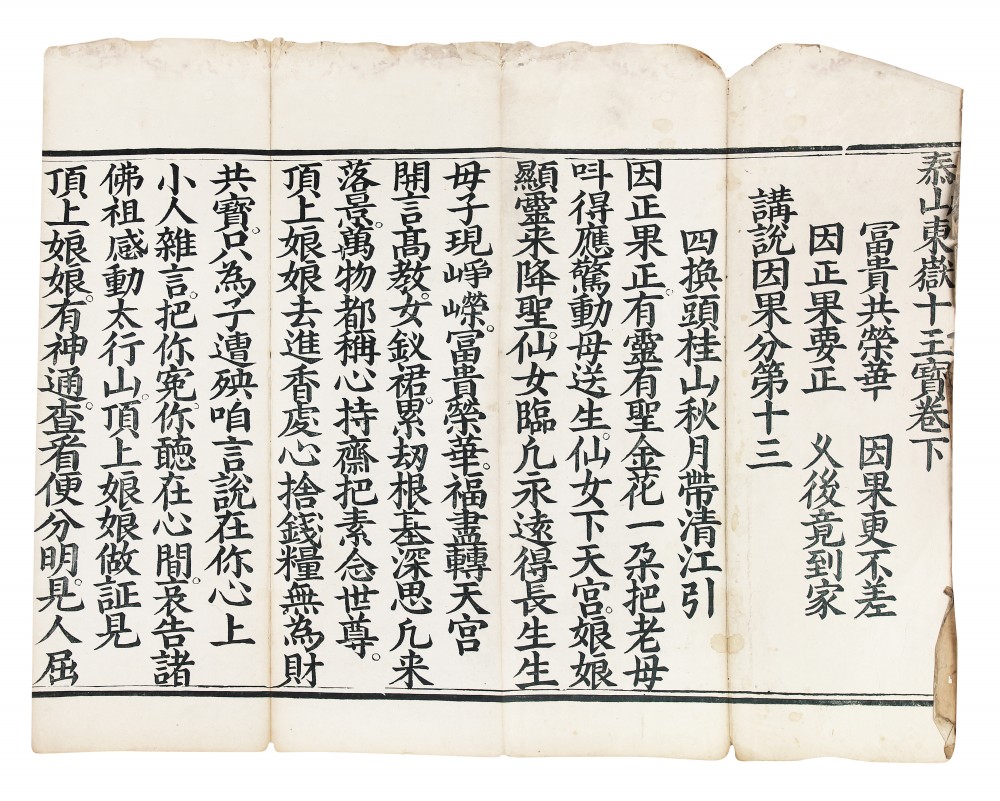 泰山東嶽十王寶卷下
冨貴共榮華　因果更不差
因正果要正　乆後竟到家
講說因果分第十三
四換頭桂山秋月帶清江引
因正果正。有靈有聖金花一朶把老母
呌得應驚動母送生。仙女下天宮。娘娘
顯靈来降聖。仙女臨凢永遠得長生生
母子現崢嶸。冨貴榮華。福盡轉天宮
開言髙教。女釵裙累刼根基深思凢来
落景。萬物都稱心持齋把素念世尊。
頂上娘娘去進香處心捨錢糧無為財
共寶。只為子遭殃咱言說在你心上
小人雜言。把你寃。你聽在心間。哀告諸
佛祖感動太行山。頂上娘娘做証見
頂上娘娘。有神通。查看便分明。見人屈